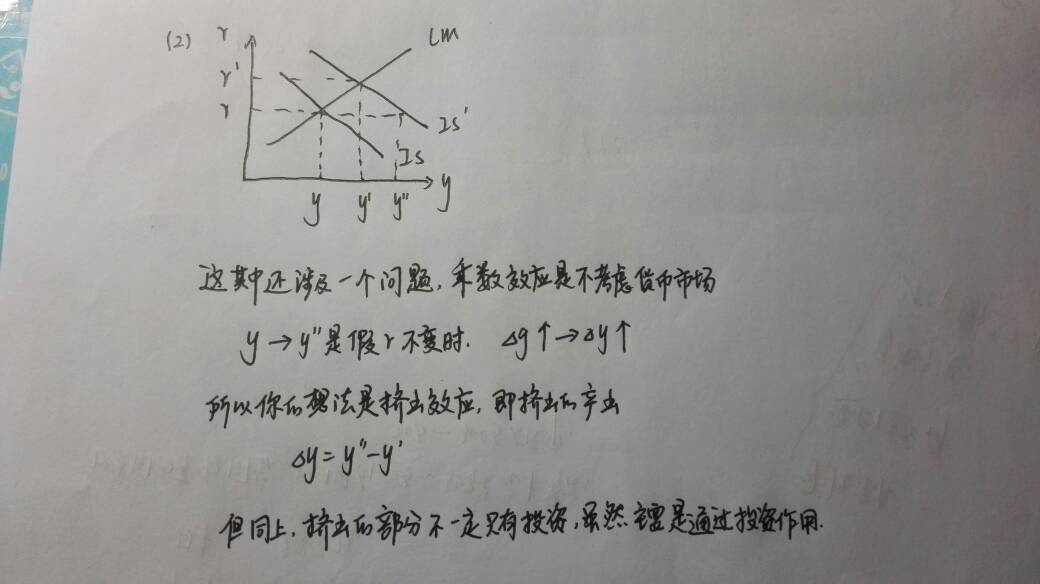 (2) r
LM
r'
r
IS'
IS
y y' y'' y
这其中还涉及一个问题,乘数效应是不考虑货币市场
y→y''是假r不变时. Δg↑→Δy↑
所以你的想法是挤出效应,即挤出的产出
Δy=y''-y'
但同上,挤出的部分不一定只有投资,虽然主要是通过投资作用.